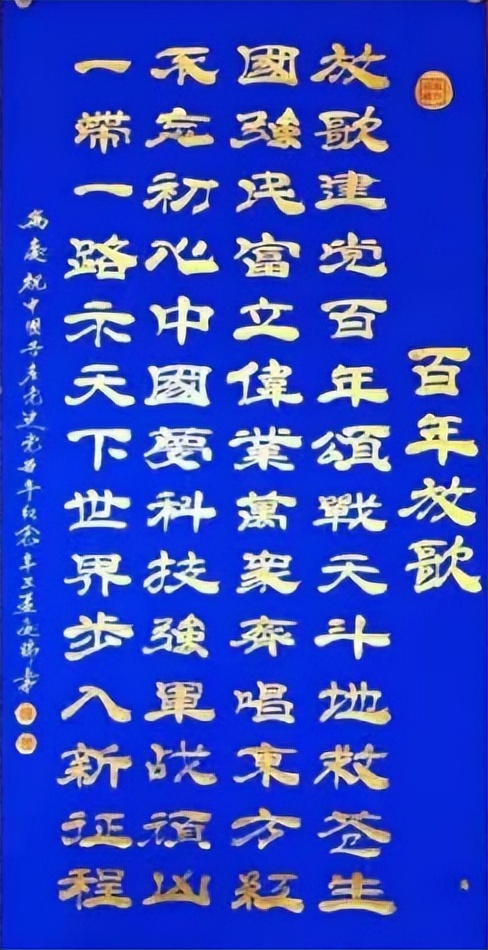 百年放歌
放歌建党百年頌戰天斗地救苍生
國強民富立偉業萬衆齐唱東方紅
不忘初心中國夢科技強軍战頑凶
一帶一路示天下世界步入新征程
為慶祝中國共产党建党百年纪念辛丑